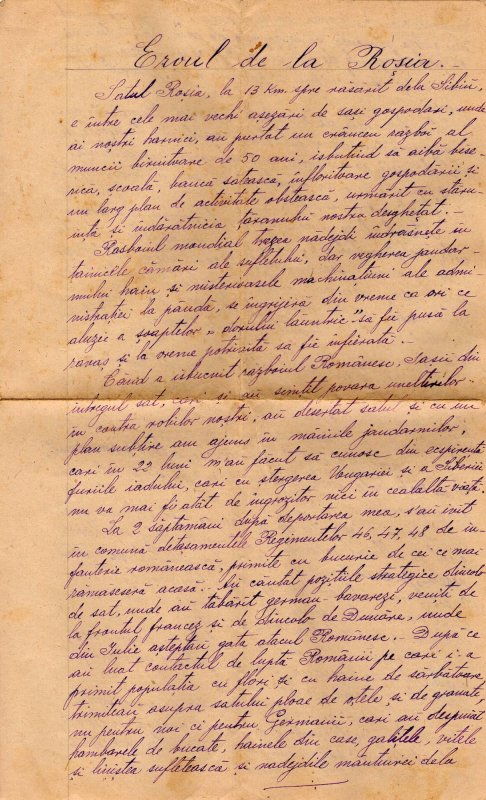 Eroul de la Roşia. -
Satul Rosia, la 13 Km. spre răsărit dela Sibiu,
e între cele mai vechi aşezări de saşi gospodari, unde
ai noştri harnici, au purtat un crâncen razboi al
muncii biruitoare de 50 ani, isbutind să aibă bise-
rica, scoală, bancă sătească, infloritoare gospodării şi
un larg plan de activitate obştească, urmărit cu stăru-
inta şi indărătnicia ţăranului nostru desgheţat. -
Rasboiul mondial trezea nădejdi îndrasneţe in
tainicele cămări ale sufletului, dar vegherea jandar-
mului hain şi misterioasele machinatiuni ale admi-
nistraţiei la pândă, se ingrijiră din vreme ca ori ce
aluzie a şoaptelor "dorului lăuntric" să fie pusă la
ravaş şi la vreme potrivită sa fie infierată. -
Când a isbucnit razboiul Românesc, Saşii din
intregul sat, cari şi au simţit povara uneltirilor
in contra robilor noştri, au desertat satul şi cu un
plan subtire am ajuns în mâinile jandarmilor,
cari în 22 luni m'au făcut să cunosc din experienţă
furiile iadului, cari cu stergerea Ungariei şi a Siberiei
nu va mai fi atât de ingrozitor nici in cealaltă viaţă.
La 2 săptămâni după deportarea mea, s'au ivit
in comună detasamentele Regimentelor 46, 47, 48 de in-
fanterie românească, primite cu bucurie de cei ce mai
rămaseseră acasă. - Au căutat poziţiile strategice dincolo
de sat, unde au tăbărit german-bavarezi, veniţi de
la frontul francez şi de dincolo de Dunăre, unde
din Iulie aşteptau gata atacul Românesc. - După ce
au luat contactul de luptă Românii pe cari i-a
primit populatia cu flori şi cu haine de sărbătoare,
trimiteau asupra satului ploae de oţele şi de granate
nu pentru noi ci pentru Germanii, cari au despuiat
hambarele de bucate, hainele din case, galiţele, vitele
şi liniştea sufletească şi nadejdile mântuirei dela